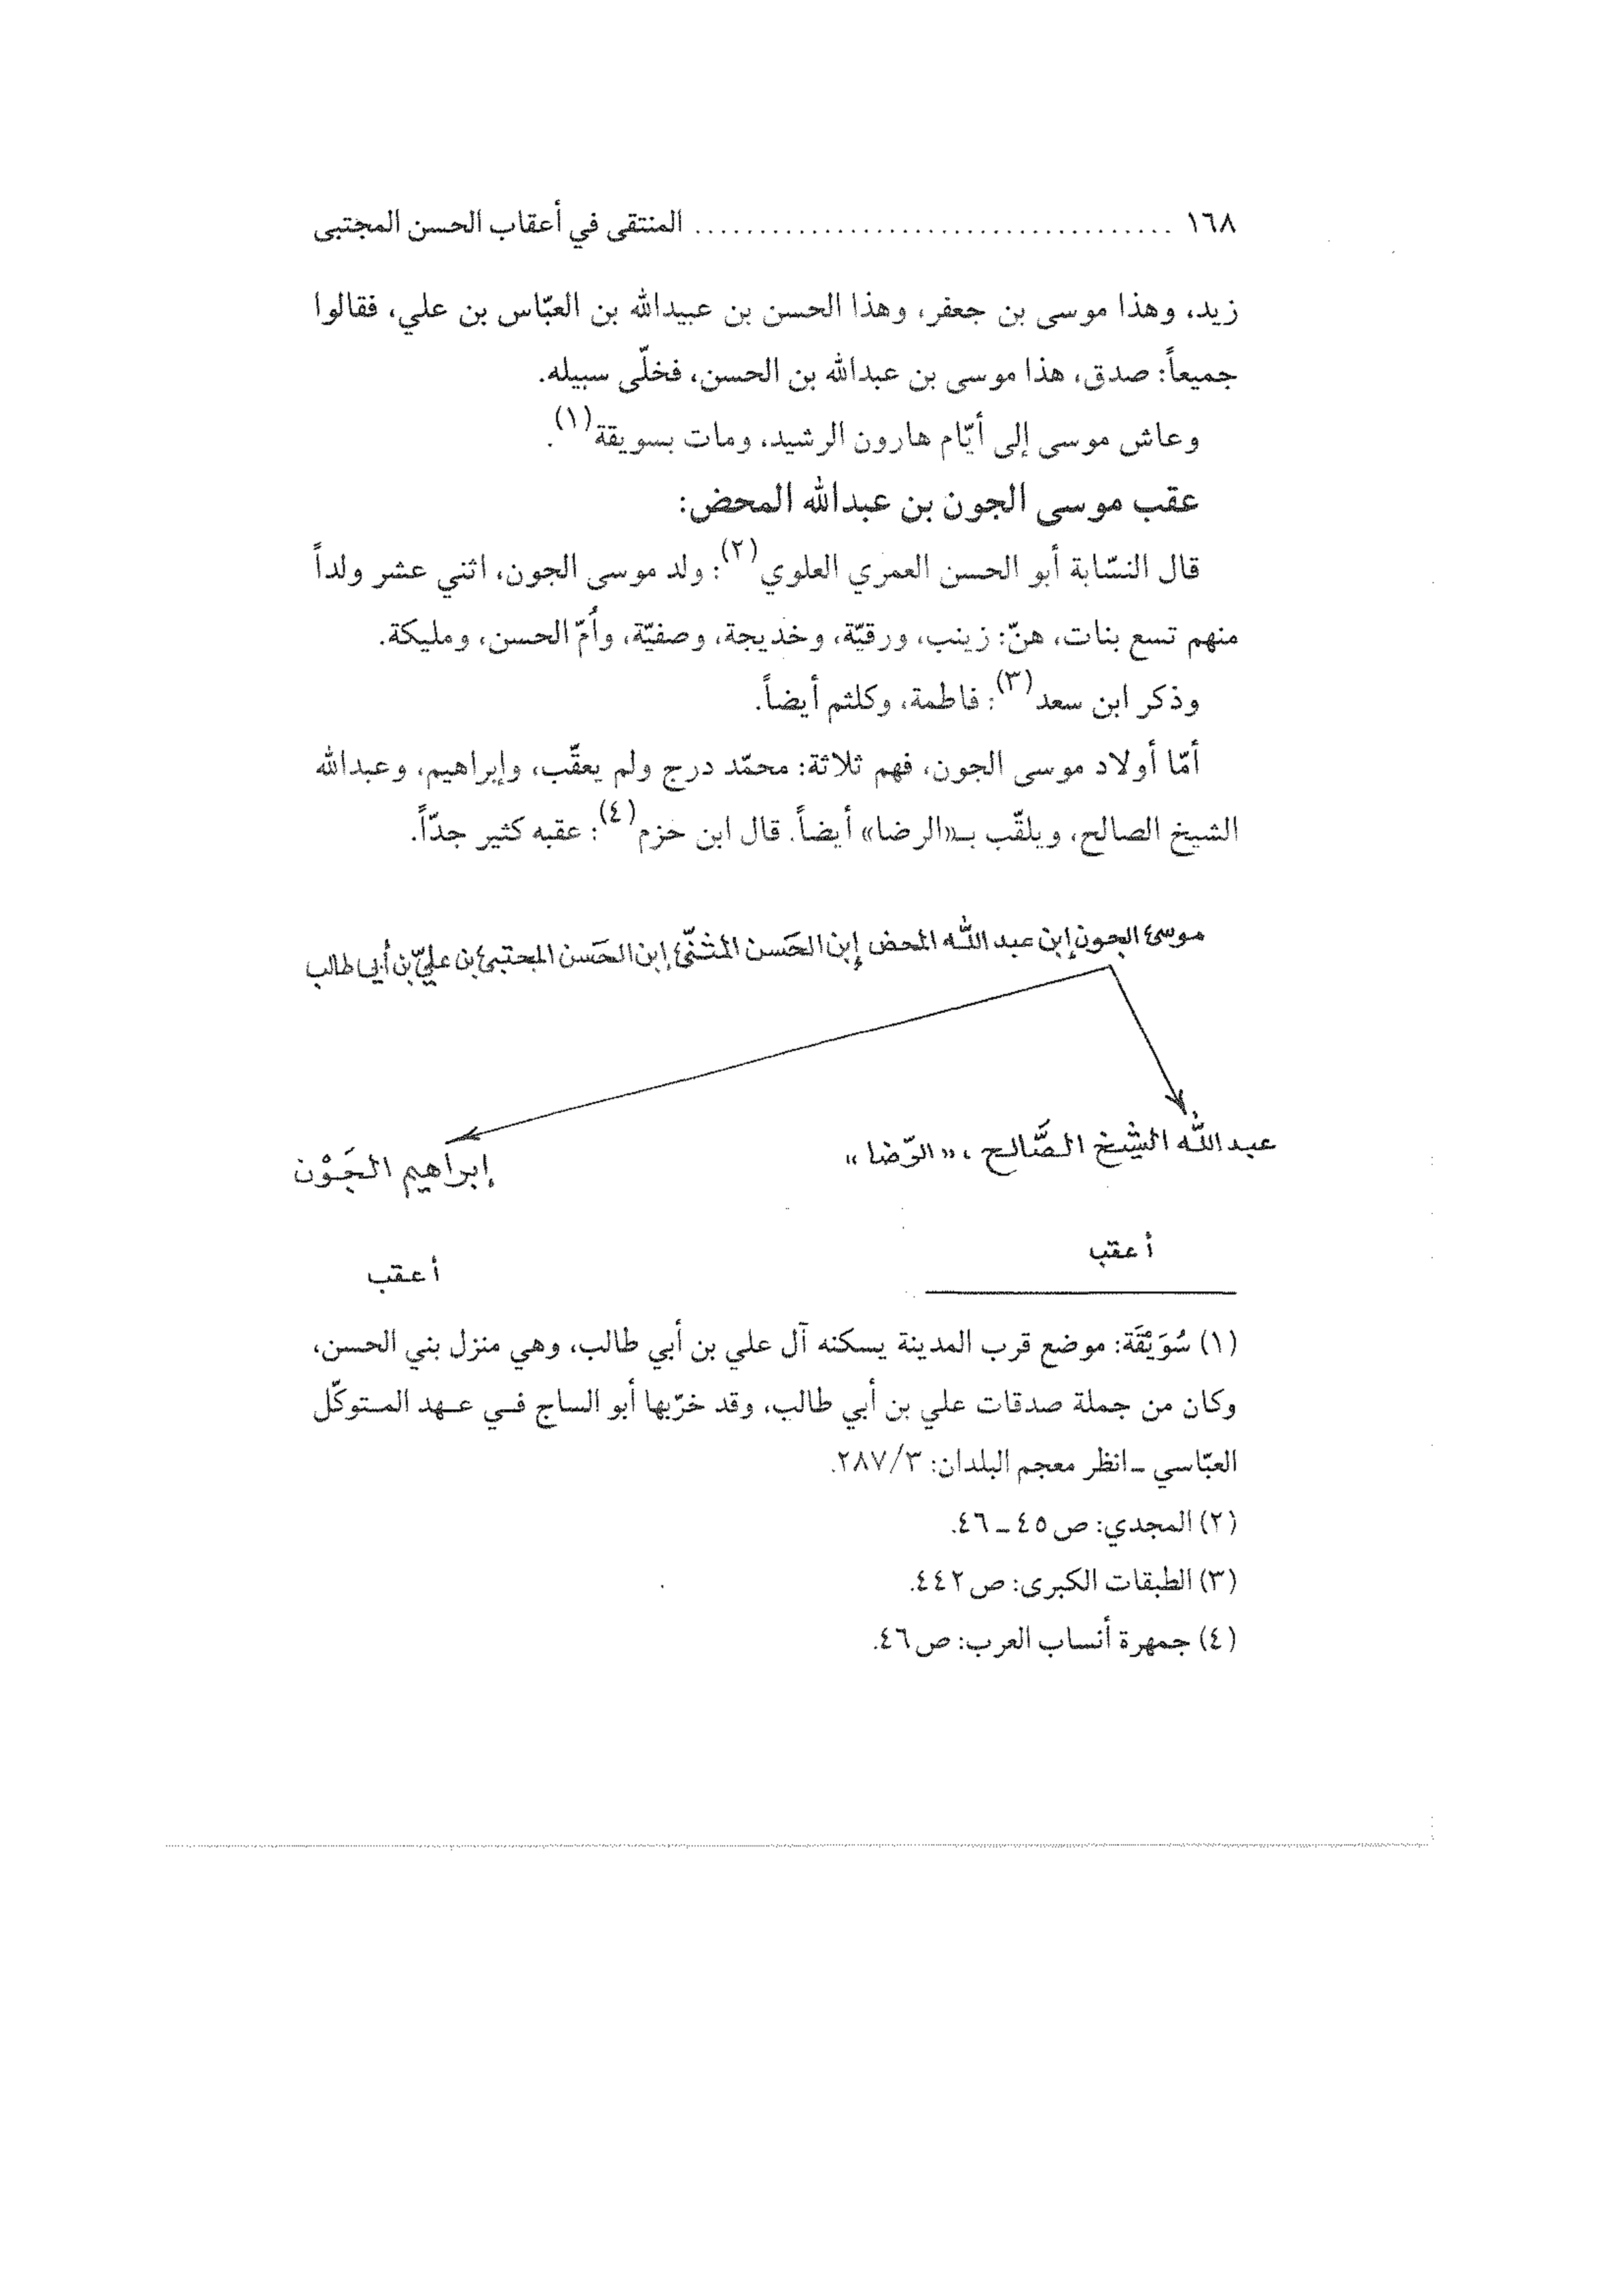 ١٦٨ .................................... المنتقى في أعقاب الحسن المجتبى
زيد، وهذا موسى بن جعفر، وهذا الحسن بن عبيدالله بن العبّاس بن علي، فقالوا
جميعاً: صدق، هذا موسى بن عبدالله بن الحسن، فخلّى سبيله.
وعاش موسى إلى أيّام هارون الرشيد، ومات بسويقة(١).
عقب موسى الجون بن عبدالله المحض:
قال النسّابة أبو الحسن العمري العلوي(٢): ولد موسى الجون، اثني عشر ولداً
منهم تسع بنات، هنّ: زينب، ورقيّة، وخديجة، وصفيّة، وأمّ الحسن، ومليكة.
وذكر ابن سعد(٣): فاطمة، وكلثم أيضاً.
أمّا أولاد موسى الجون، فهم ثلاثة: محمّد درج ولم يعقّب، وإبراهيم، وعبدالله
الشيخ الصالح، ويلقّب بـ«الرضا» أيضاً. قال ابن حزم(٤): عقبه كثير جدّاً.
موسى الجون إبن عبد الله المحض إبن الحَسن المثنّى إبن الحَسن المجتبى بن عليّ بن أبي طالب
عبد الله الشيخ الصَّالح، «الرّضا»
إبراهيم الجَوْن
أعقب
أعقب
(١) سُوَيْقَة: موضع قرب المدينة يسكنه آل علي بن أبي طالب، وهي منزل بني الحسن،
وكان من جملة صدقات علي بن أبي طالب، وقد خرّبها أبو الساج في عهد المتوكّل
العبّاسي ـ انظر معجم البلدان: ٢٨٧/٣.
(٢) المجدي: ص٤٥ ـ ٤٦.
(٣) الطبقات الكبرى: ص٤٤٢.
(٤) جمهرة أنساب العرب: ص٤٦.